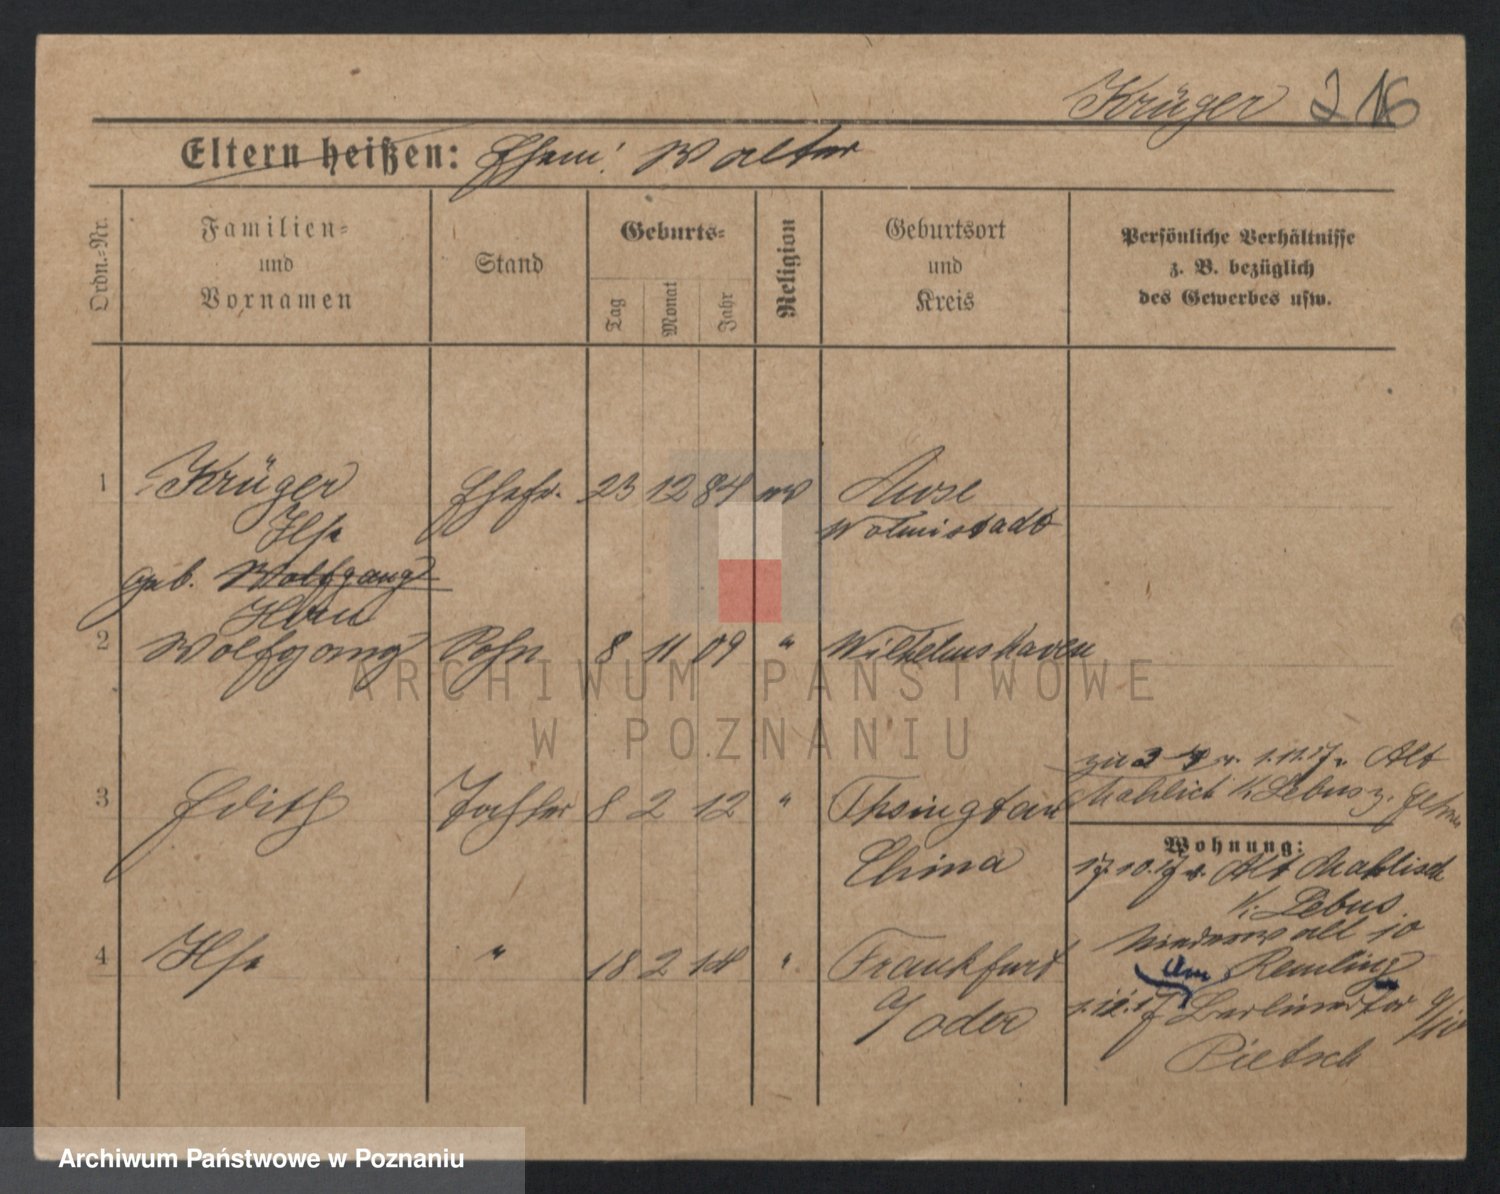 Krüger 216
Eltern heißen: Ehem: Walter
Ordn.-Nr.
Familien-
und
Vornamen
Stand
Geburts-
Tag
Monat
Jahr
Religion
Geburtsort
und
Kreis
Persönliche Verhältnisse
z. B. bezüglich
des Gewerbes usw.
1 Krüger Ehefr. 23 12 84 ev
Ilse Wolmistadt
geb. Wolfgang
Horn
2 Wolfgang Sohn 8 11 09 " Wilhelmshaven
zu 3 1.11.17 v. Alt
Mahlisch K. Lebus z.
3 Edith Tochter 8 2 12 " Thsingtau
China
Wohnung:
17.10.17 v. Alt Mahlisch
K. Lebus.
4 Ilse " 18 2 14 " Frankfurt
a/oder
Niederwall 10
Am Remling
1.12.17 Berlinertor 9/10
Pietsch
ARCHIWUM PAŃSTWOWE
W POZNANIU
Archiwum Państwowe w Poznaniu